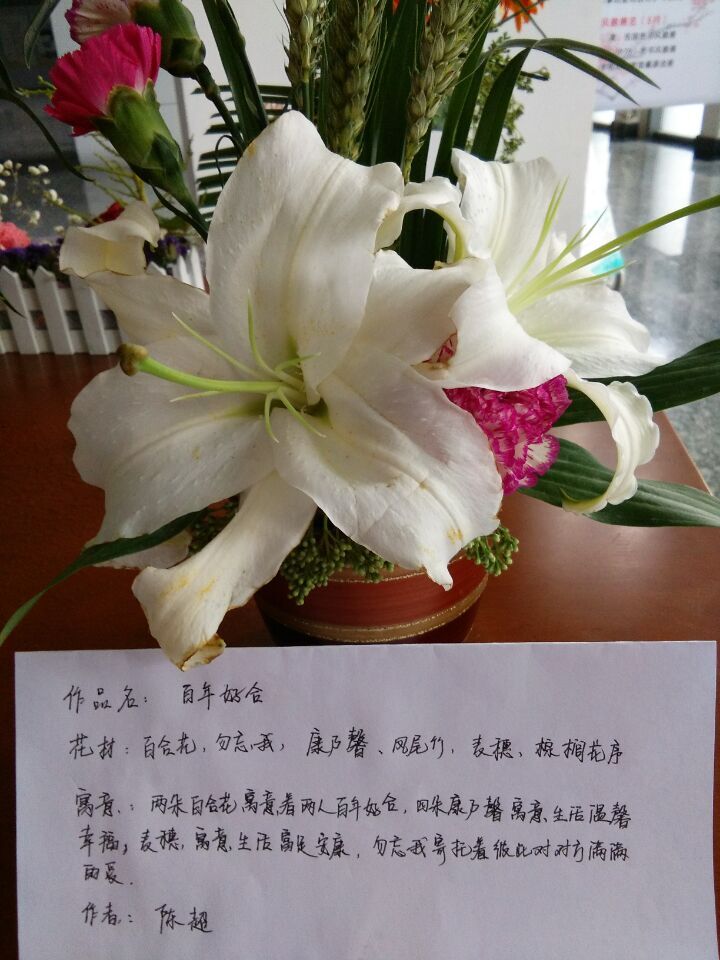 作品名：百年好合
花材：百合花，勿忘我，康乃馨、凤尾竹，麦穗，棕榈花序
寓意：两朵百合花寓意着两人百年好合，四朵康乃馨寓意生活温馨
幸福，麦穗，寓意生活富足安康，勿忘我寄托着彼此对对方满满
的爱．
作者：陈超